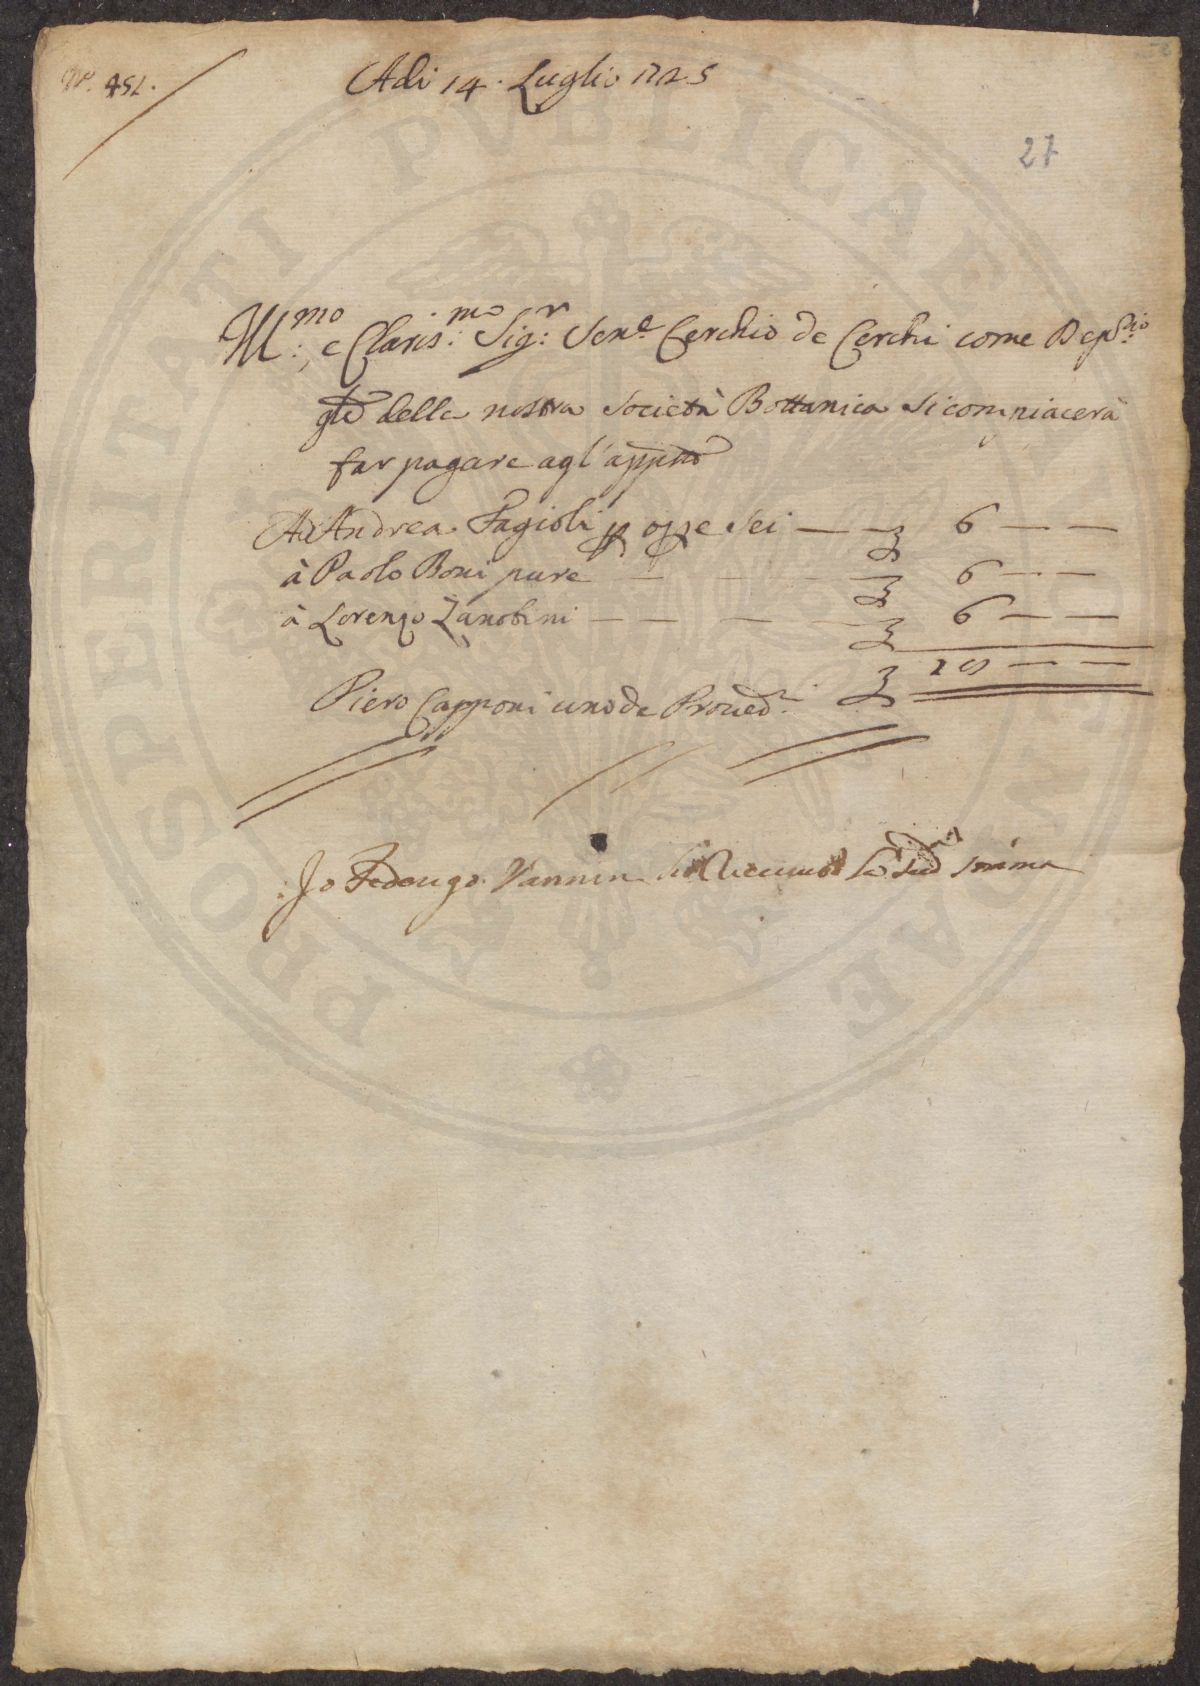 N.º 452.
Adi 14. Luglio 1725
27
Ill:mo e Claris:mo Sig:r Sen:e Cerchio de Cerchi come Dep:rio
gle della nostra Società Bottanica si compiacerà
far pagare agl'appiè
A Andrea Fagioli p opre Sei — — 6 — —
à Paolo Boni pure — — — — 6 — —
à Lorenzo Zanobini — — — — 6 — —
18 — —
Piero Capponi uno de Proved:ri
Io Federigo Vannini ò riceuuto la sud somma
PROSPERITATI PVBLICAE AVGENDAE